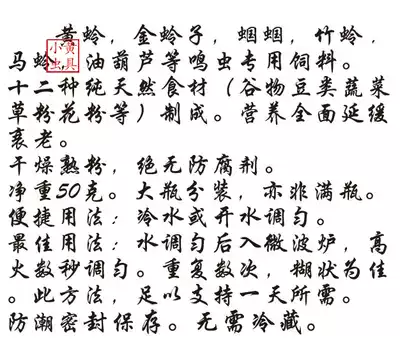 黄蛉，金蛉子，蝈蝈，竹蛉，
马蛉，油葫芦等鸣虫专用饲料。
十二种纯天然食材（谷物豆类蔬菜
草粉花粉等）制成。营养全面延缓
衰老。
干燥熟粉，绝无防腐剂。
净重50克。大瓶分装，亦非满瓶。
便捷用法：冷水或开水调匀。
最佳用法：水调匀后入微波炉，高
火数秒调匀。重复数次，糊状为佳
。此方法，足以支持一天所需。
防潮密封保存。无需冷藏。
小黄
虫具